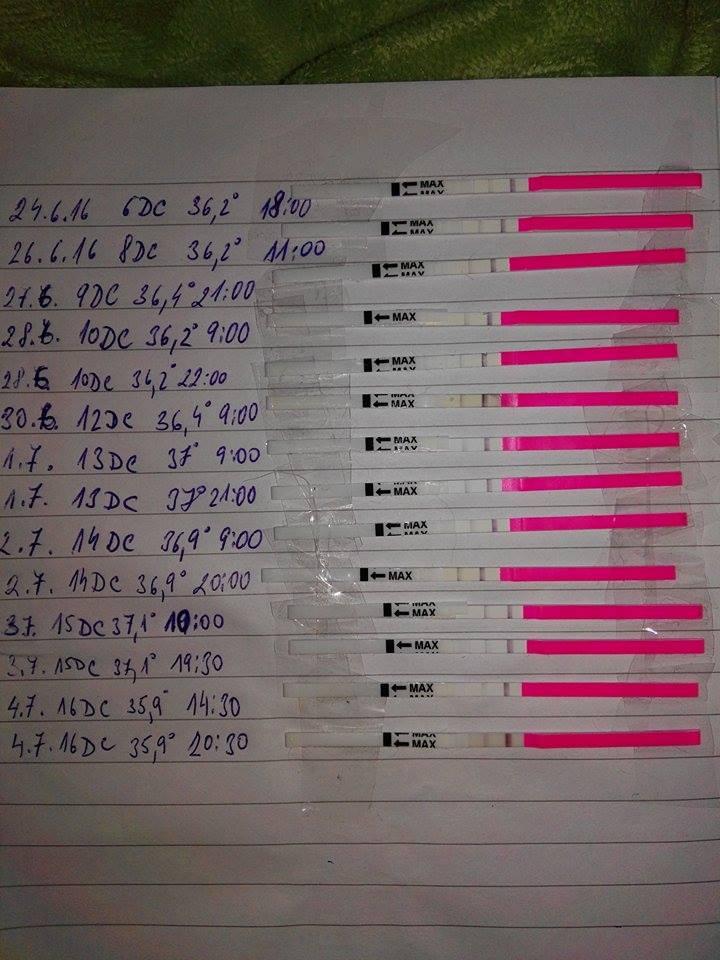 MAX
MAX
24.6.16 6DC 36,2° 18:00
MAX
MAX
26.6.16 8DC 36,2° 11:00
MAX
MAX
27.6. 9DC 36,4° 21:00
MAX
28.6. 10DC 36,2° 9:00
MAX
MAX
28.6 10DC 36,2° 22:00
MAX
MAX
30.6. 12DC 36,4° 9:00
MAX
MAX
1.7. 13DC 37° 9:00
MAX
MAX
1.7. 13DC 37° 21:00
MAX
MAX
2.7. 14DC 36,9° 9:00
MAX
2.7. 14DC 36,9° 20:00
MAX
MAX
3.7. 15DC 37,1° 10:00
MAX
MAX
3.7. 15DC 37,1° 19:30
MAX
MAX
4.7. 16DC 35,9° 14:30
MAX
MAX
4.7. 16DC 35,9° 20:30